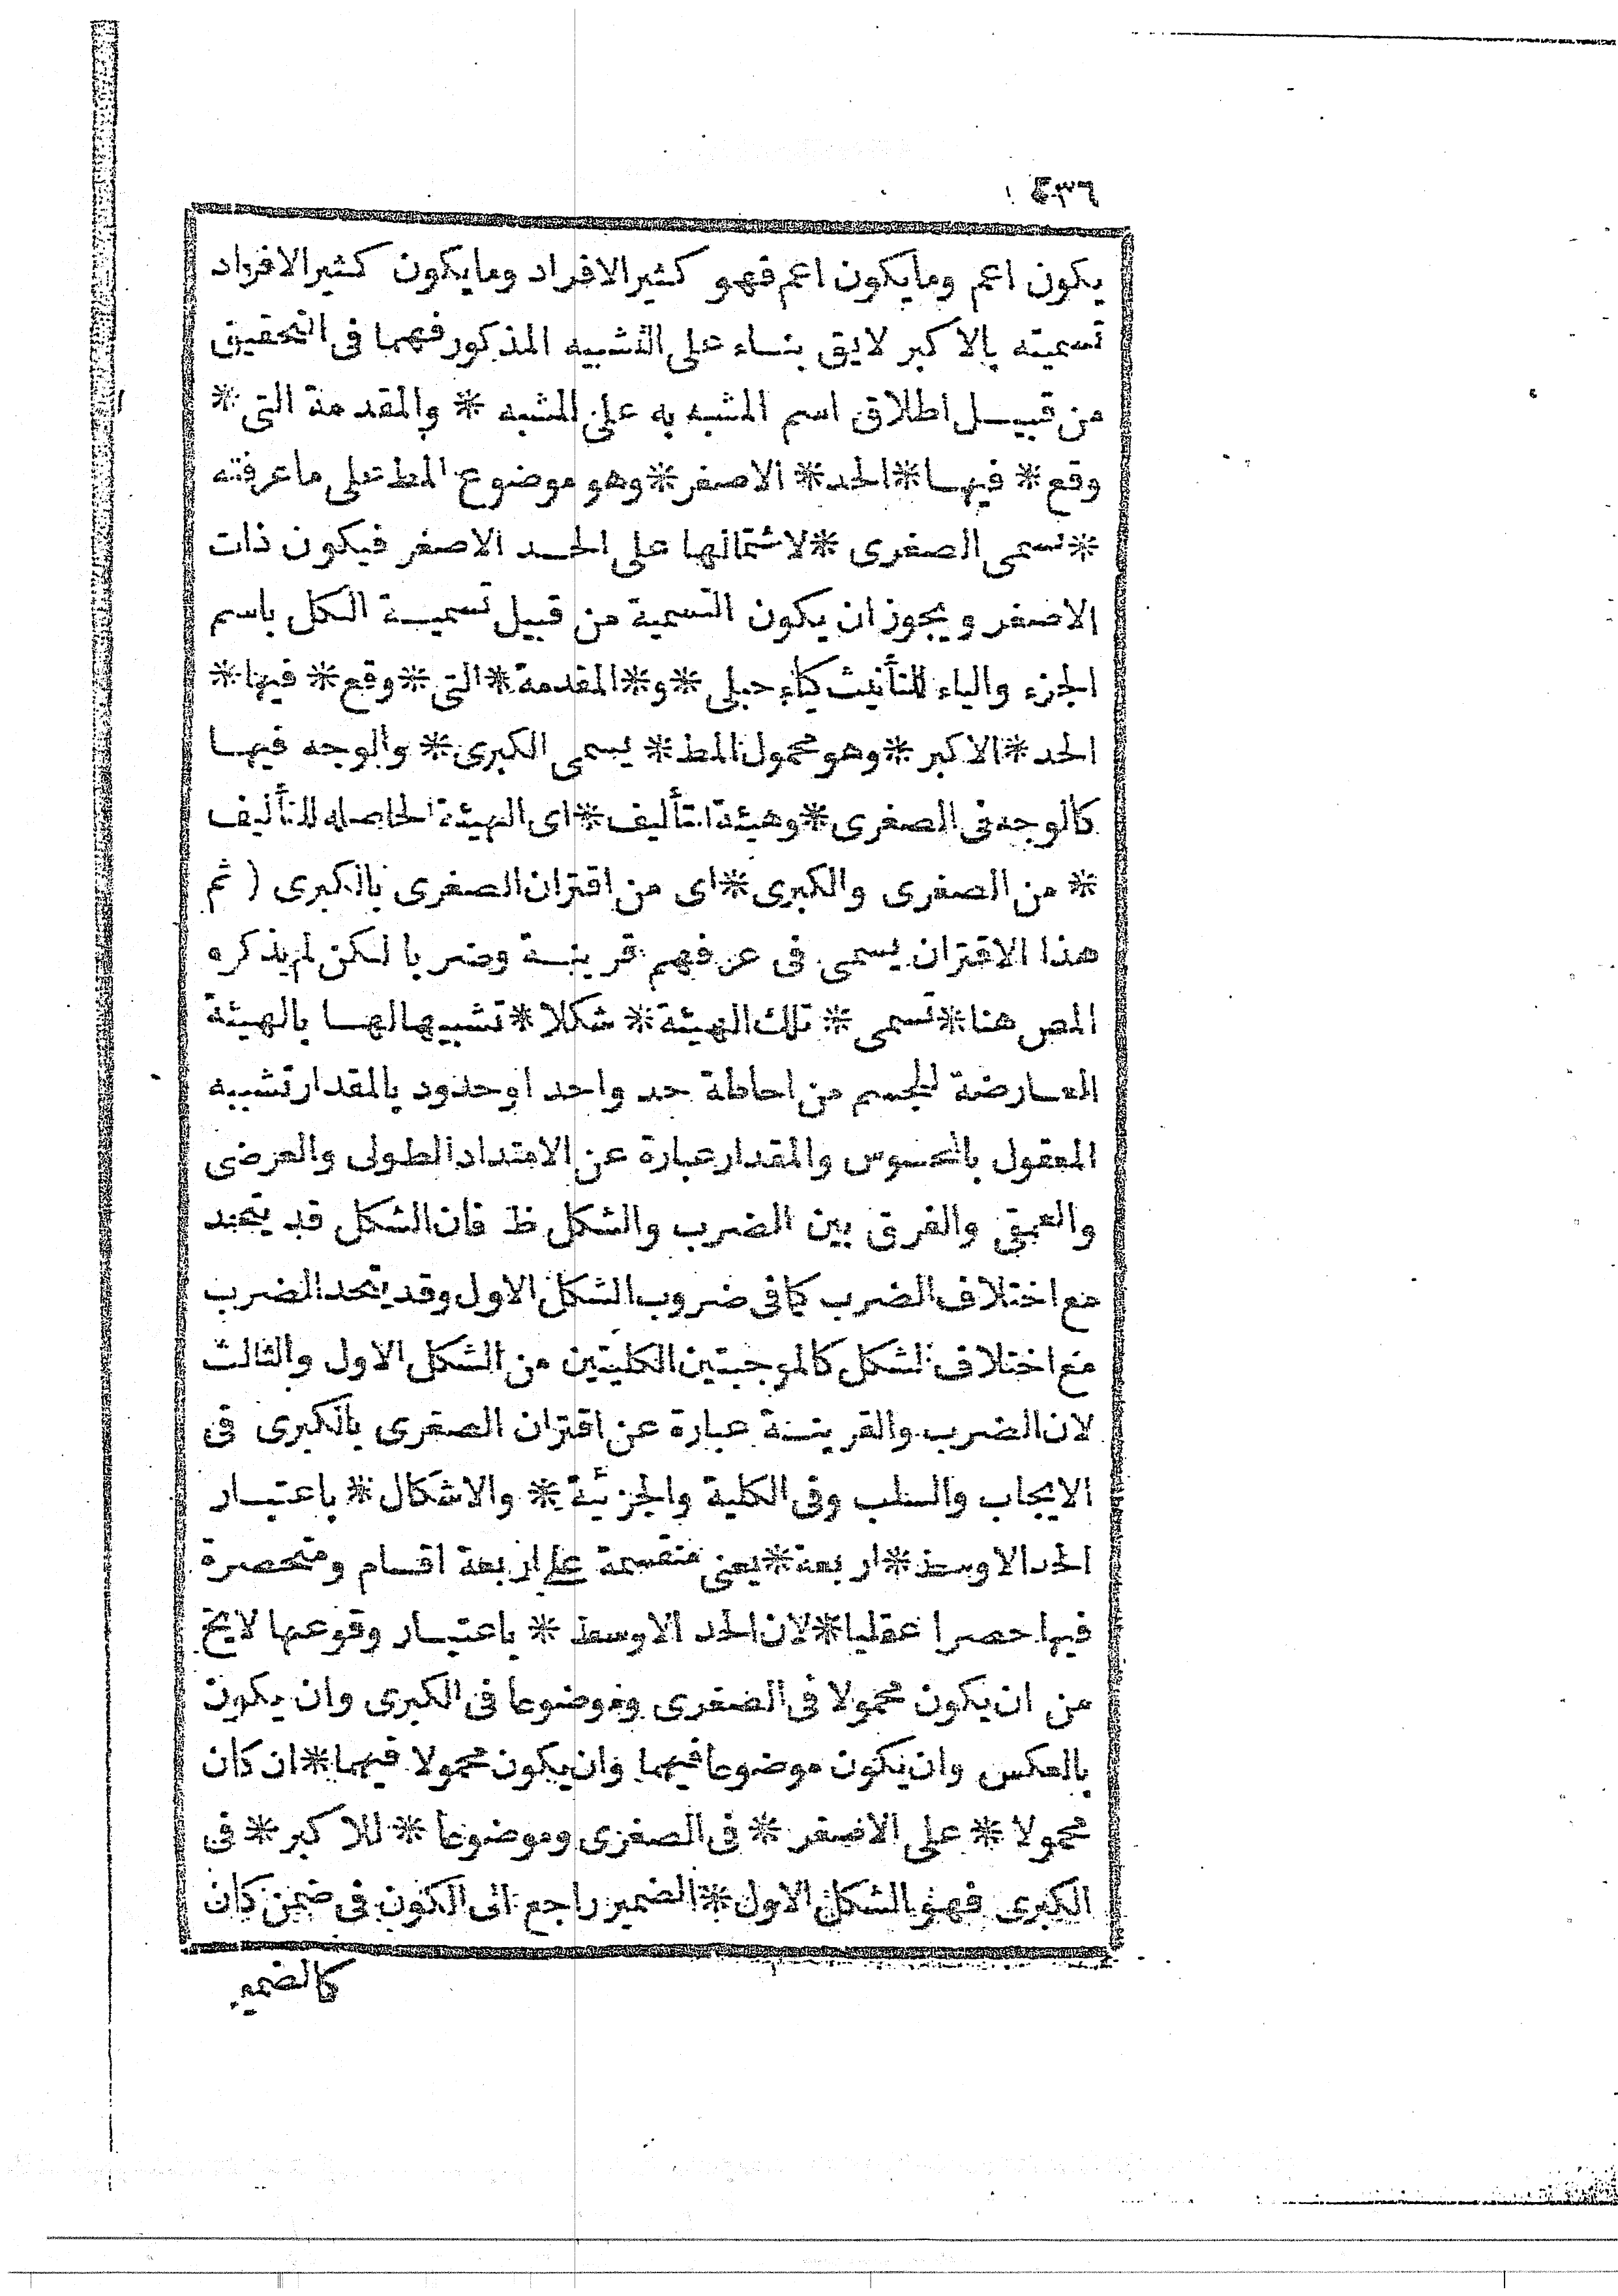 يكون اعم ومايكون اعم فهو كثير الافراد ومايكون كثير الافراد
تسميته بالاكبر لايق بناء على التشبيه المذكور فهما فى التحقيق
من قبيل اطلاق اسم المشبه به على المشبه * والمقدمة التى *
وقع * فيها * الحد * الاصغر * وهو موضوع المط على ماعرفته
* تسمى الصغرى * لاشتمالها على الحد الاصغر فيكون ذات
الاصغر ويجوز ان يكون التسمية من قبيل تسمية الكل باسم
الجزء والياء للتأنيث كياء حبلى * و * المقدمة * التى * وقع * فيها *
الحد * الاكبر * وهو محمول المط * يسمى الكبرى * والوجه فيها
كالوجه فى الصغرى * وهيئة التأليف * اى الهيئة الحاصله للتأليف
* من الصغرى والكبرى * اى من اقتران الصغرى بالكبرى ( ثم
هذا الاقتران يسمى فى عرفهم قرينة وضربا لكن لم يذكره
المص هنا * تسمى * تلك الهيئة * شكلا * تشبيها لها بالهيئة
العارضة للجسم من احاطة حد واحد او حدود بالمقدار تشبيه
المعقول بالمحسوس والمقدار عبارة عن الامتداد الطولى والعرضى
والعمقى والفرق بين الضرب والشكل ظ فان الشكل قد يتحد
مع اختلاف الضرب كما فى ضروب الشكل الاول وقد يتحد الضرب
مع اختلاف الشكل كالموجبتين الكليتين من الشكل الاول والثالث
لان الضرب والقرينة عبارة عن اقتران الصغرى بالكبرى فى
الايجاب والسلب وفى الكلية والجزئية * والاشكال * باعتبار
الحد الاوسط * اربعة * يعنى منقسمة على اربعة اقسام ومنحصرة
فيها حصرا عقليا * لان الحد الاوسط * باعتبار وقوعها لايخ
من ان يكون محمولا فى الصغرى وموضوعا فى الكبرى وان يكون
بالعكس وان يكون موضوعا فيهما وان يكون محمولا فيهما * ان كان
محمولا * على الاصغر * فى الصغرى وموضوعا * للاكبر * فى
الكبرى فهو الشكل الاول * الضمير راجع الى الكون فى ضمن كان
كالضمير